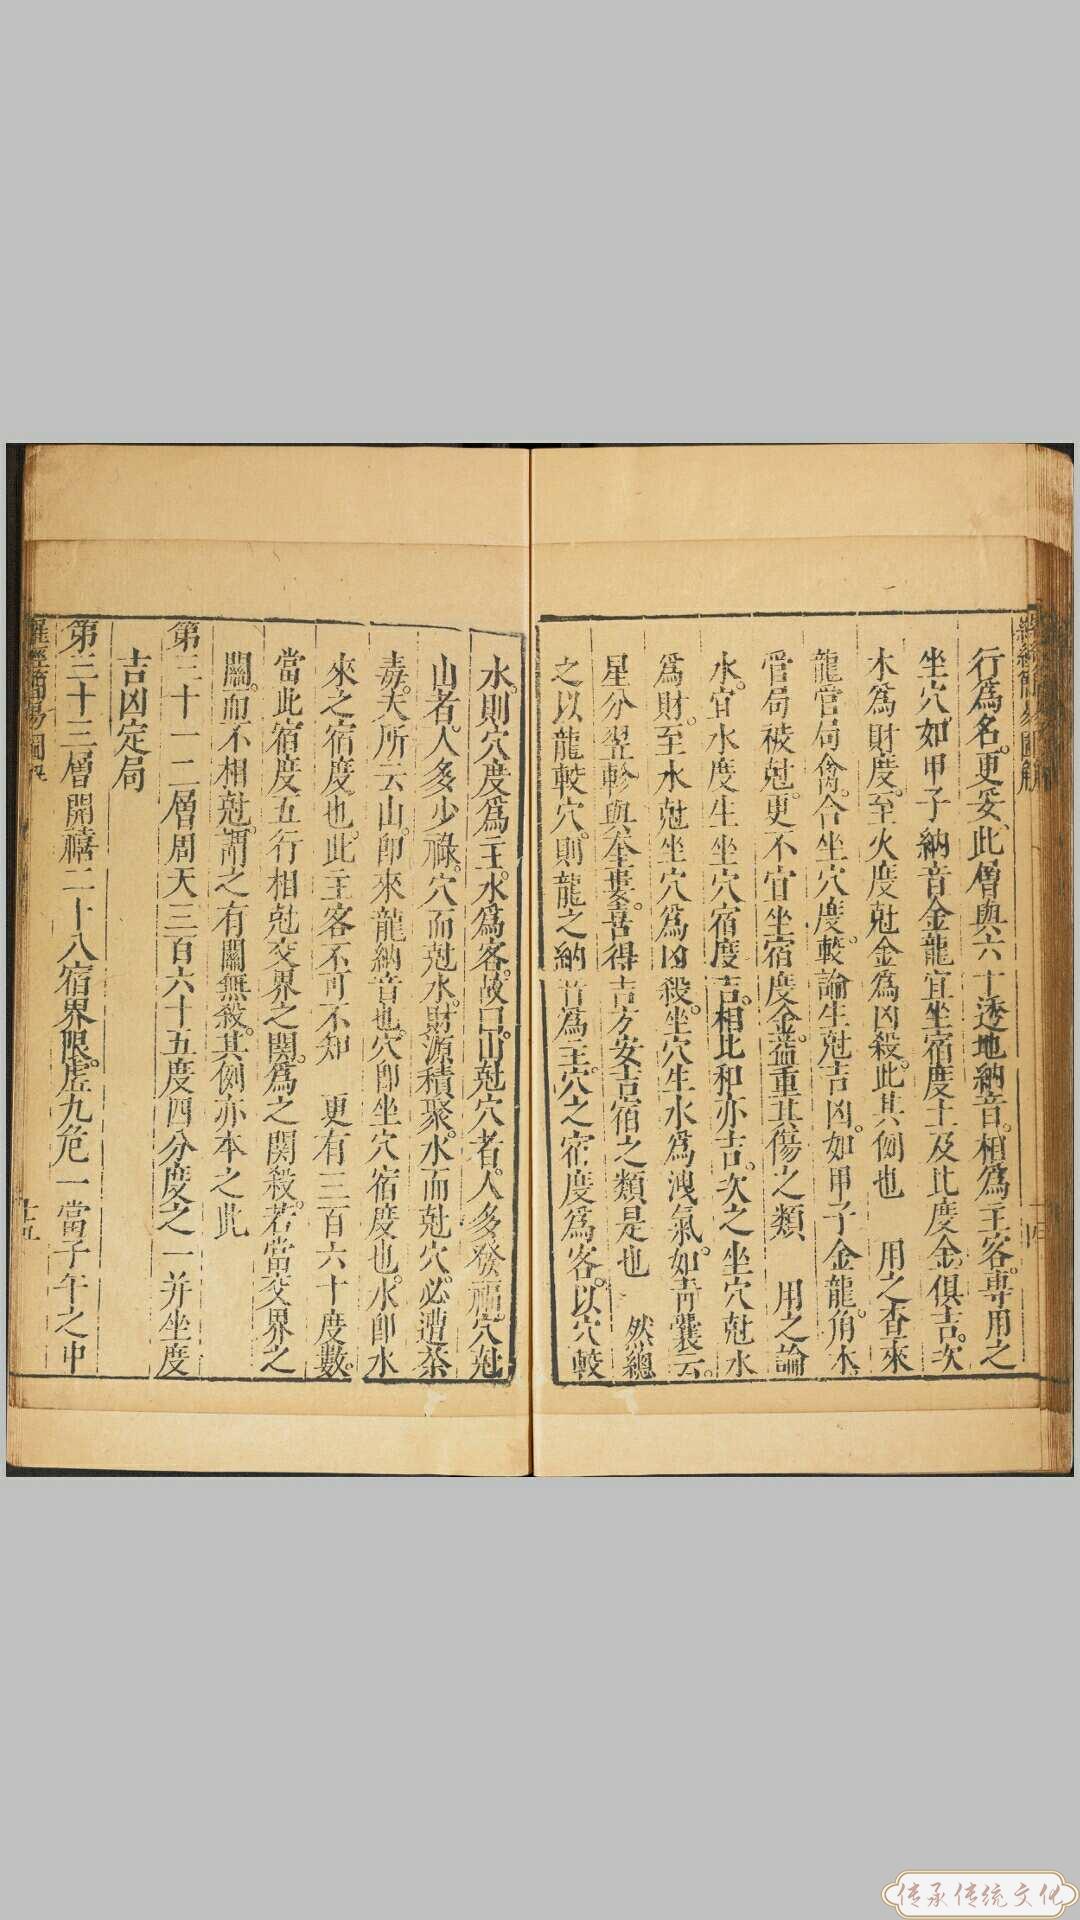 行爲名。更妥。此層與六十透地納音。相爲主客。專用之
坐穴。如甲子納音金龍宜坐宿度土及比度金。俱吉。次
木爲財度。至火度尅金爲凶殺。此其例也 用之查來
龍管局禽。合坐穴度。較論生尅吉凶。如甲子金龍。角木
管局被尅。更不宜坐宿度金。葢重其傷之類 用之論
水。宜水度生坐穴宿度吉。相比和亦吉。次之坐穴尅水
爲財。至水尅坐穴爲凶殺。坐穴生水爲洩氣。如靑囊云。
星分翌軫與奎婁。喜得吉方安吉宿之類是也 然總
之以龍較穴。則龍之納音爲主。穴之宿度爲客。以穴較
水。則穴度爲主。水爲客。故曰。山尅穴者。人多發福。穴尅
山者。人多少祿。穴而尅水。財源積聚。水而尅穴。必遭荼
毒。夫所云山。卽來龍納音也。穴卽坐穴宿度也。水卽水
來之宿度也。此主客不可不知 更有三百六十度數。
當此宿度五行相尅交界之關。爲之関殺。若當交界之
關。而不相尅。謂之有關無殺。其例亦本之此
第三十一二層周天三百六十五度四分度之一并坐度
吉凶定局
第三十三層開禧二十八宿界限。虛九危一當子午之中
十五
传承传统文化